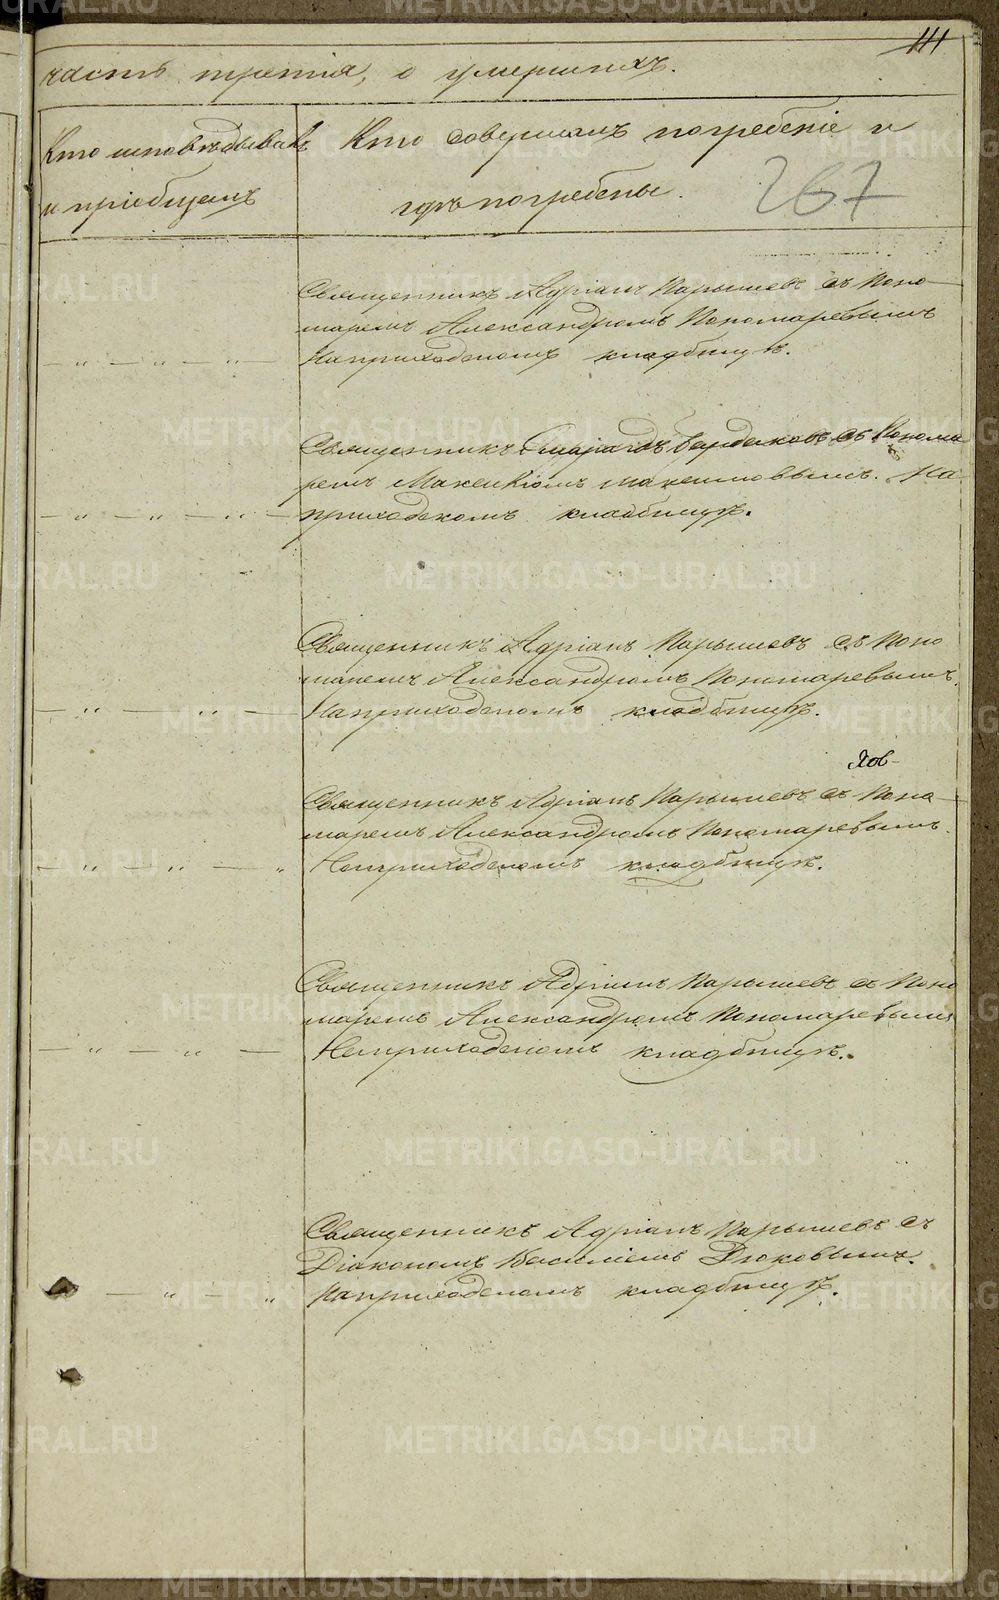 111
часть третія, о умершихъ.
Кто исповѣдывалъ
и пріобщалъ
Кто совершалъ погребеніе и
гдѣ погребены.
267
Священникъ Адріанъ Парышевъ съ Поно
маремъ Александромъ Пономаревымъ
На приходскомъ кладбищѣ.
— „ — „ — „ —
Священникъ Смарагдъ съ Понома
ремъ Максимовымъ. На
приходскомъ кладбищѣ.
— „ — „ — „ —
Священникъ Адріанъ Парышевъ съ Поно
маремъ Александромъ Пономаревымъ.
На приходскомъ кладбищѣ.
— „ — „ —
Священникъ Адріанъ Парышевъ съ Поно
маремъ Александромъ Пономаревымъ.
На приходскомъ кладбищѣ.
— „ — „ — „
Священникъ Адріанъ Парышевъ съ Поно
маремъ Александромъ Пономаревымъ
На приходскомъ кладбищѣ.
— „ — „ —
Священникъ Адріанъ Парышевъ съ
Діакономъ Василіемъ Дюковымъ.
На приходскомъ кладбищѣ.
— „ — „
METRIKI.GASO-URAL.RU